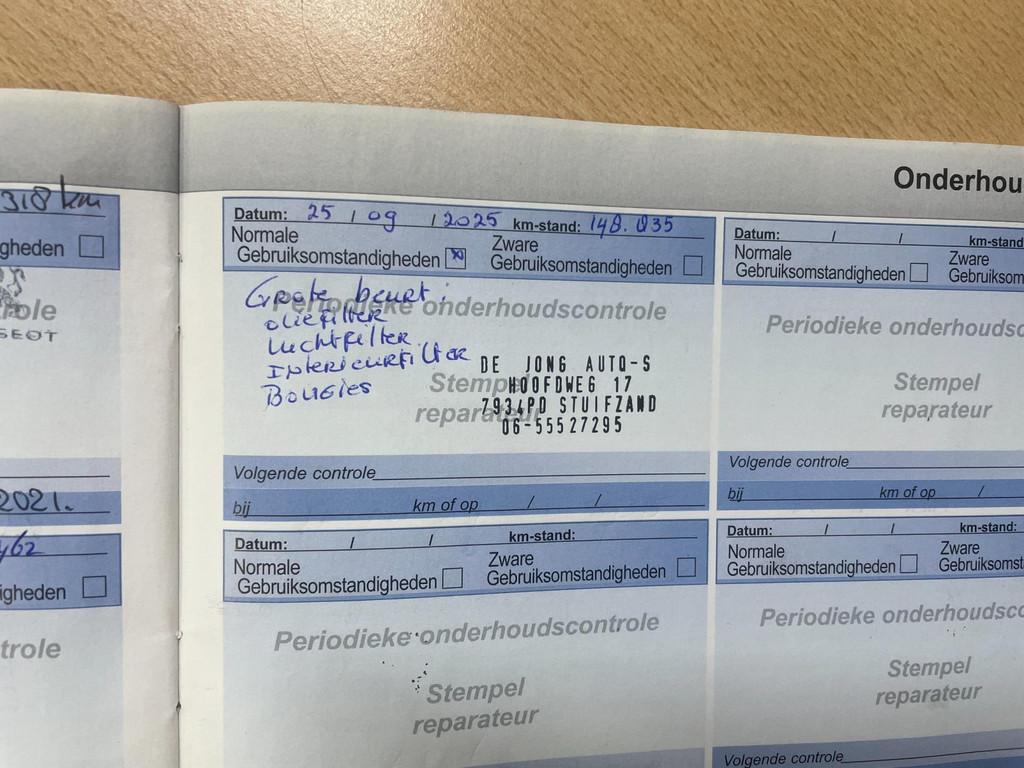 318 km
gheden
2021.
462
igheden
trole
Onderhou
Datum: 25 / 09 / 2025 km-stand: 148.035
Normale Zware
Gebruiksomstandigheden Gebruiksomstandigheden
Grote beurt:
Periodieke onderhoudscontrole
oliefilter
luchtfilter
Interieurfilter
Bougies
Stempel
reparateur
DE JONG AUTO-S
HOOFDWEG 17
7934PD STUIFZAND
06-55527295
Volgende controle
bij km of op / /
Datum: / / km-stand:
Normale Zware
Gebruiksomstandigheden Gebruiksomstandigheden
Periodieke onderhoudscontrole
Stempel
reparateur
Datum: / / km-stand
Normale Zware
Gebruiksomstandigheden Gebruiksom
Periodieke onderhoudsc
Stempel
reparateur
Volgende controle
bij km of op /
Datum: / / km-stand:
Normale Zware
Gebruiksomstandigheden Gebruiksomst
Periodieke onderhoudsc
Stempel
reparateur
Volgende controle